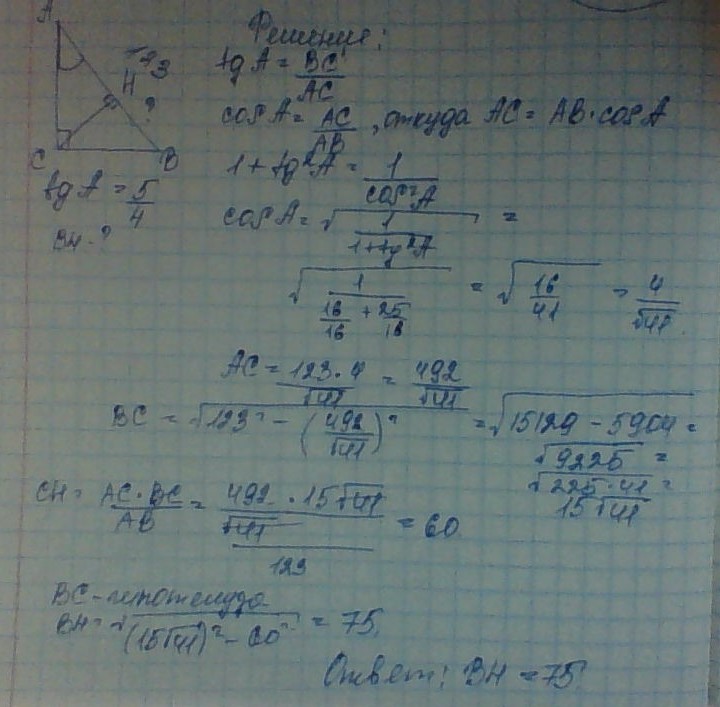 A
Решение:
123
H
?
C
B
tg A = 5/4
BH - ?
tg A = BC/AC
cos A = AC/AB, откуда AC = AB · cos A
1 + tg²A = 1/cos²A
cos A = √(1/(1+tg²A)) =
√(1/(16/16 + 25/16)) = √(16/41) = 4/√41
AC = 123·4/√41 = 492/√41
BC = √(123² - (492/√41)²) = √(15129 - 5904) =
√9225 =
√(225·41) =
15√41
CH = AC·BC/AB = (492/√41 · 15√41)/123 = 60
BC - гипотенуза
BH = √((15√41)² - 60²) = 75.
Ответ: BH = 75